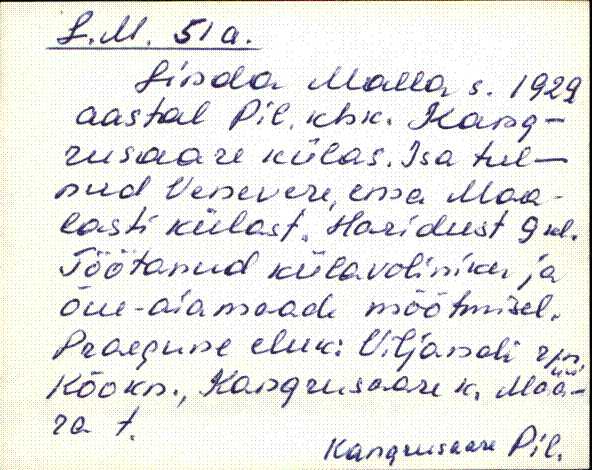 L.M. 51a.
Linda Malla s. 1929
aastal Pil. khk. Kang-
rusaare külas. Isa tul-
nud Venevere, ema Maa-
lasti külast. Haridust 9 kl.
Töötanud külavolinik ja
õue-aiamaade mõõtmisel.
Praegune eluk: Viljandi rjn.
Kõo kn., Kangrusaare k. Maa-
ra t.
Kangrusaare Pil.